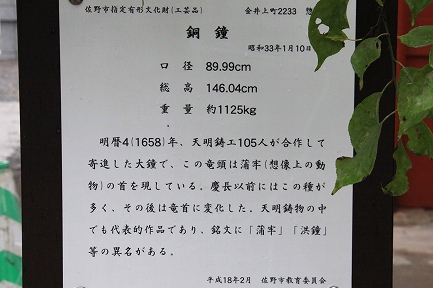 佐野市指定有形文化財(工芸品) 金井上町2233 惣
銅鐘
昭和33年1月10
口径 89.99cm
総高 146.04cm
重量 約1125kg
明暦4(1658)年、天明鋳工105人が合作して
寄進した大鐘で、この竜頭は蒲牢(想像上の動
物)の首を現している。慶長以前にはこの種が
多く、その後は竜首に変化した。天明鋳物の中
でも代表的作品であり、銘文に「蒲牢」「洪鐘」
等の異名がある。
平成18年2月 佐野市教育委員会